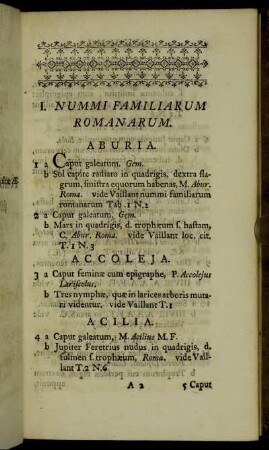 I. NUMMI FAMILIARUM
ROMANARUM.
ABURIA.
1 a Caput galeatum, Gem.
b Sol capite radiato in quadrigis, dextra fla-
grum, sinistra equorum habenas, M. Abur.
Roma. vide Vaillant nummi familiarum
romanarum Tab. 1 N. 2
2 a Caput galeatum, Gem.
b Mars in quadrigis, d. trophæum s. hastam,
C. Abur. Roma. vide Vaillant loc. cit.
T. 1 N. 3
ACCOLEJA.
3 a Caput feminæ cum epigraphe, P. Accolejus
Lariscolus.
b Tres nymphæ, quæ in larices arboris muta-
ri videntur, vide Vaillant T. 1
ACILIA.
4 a Caput galeatum, M. Acilius M. F.
b Jupiter Feretrius nudus in quadrigis, d.
fulmen s. trophæum, Roma. vide Vail-
lant T. 2 N. 6
A 2 5 Caput